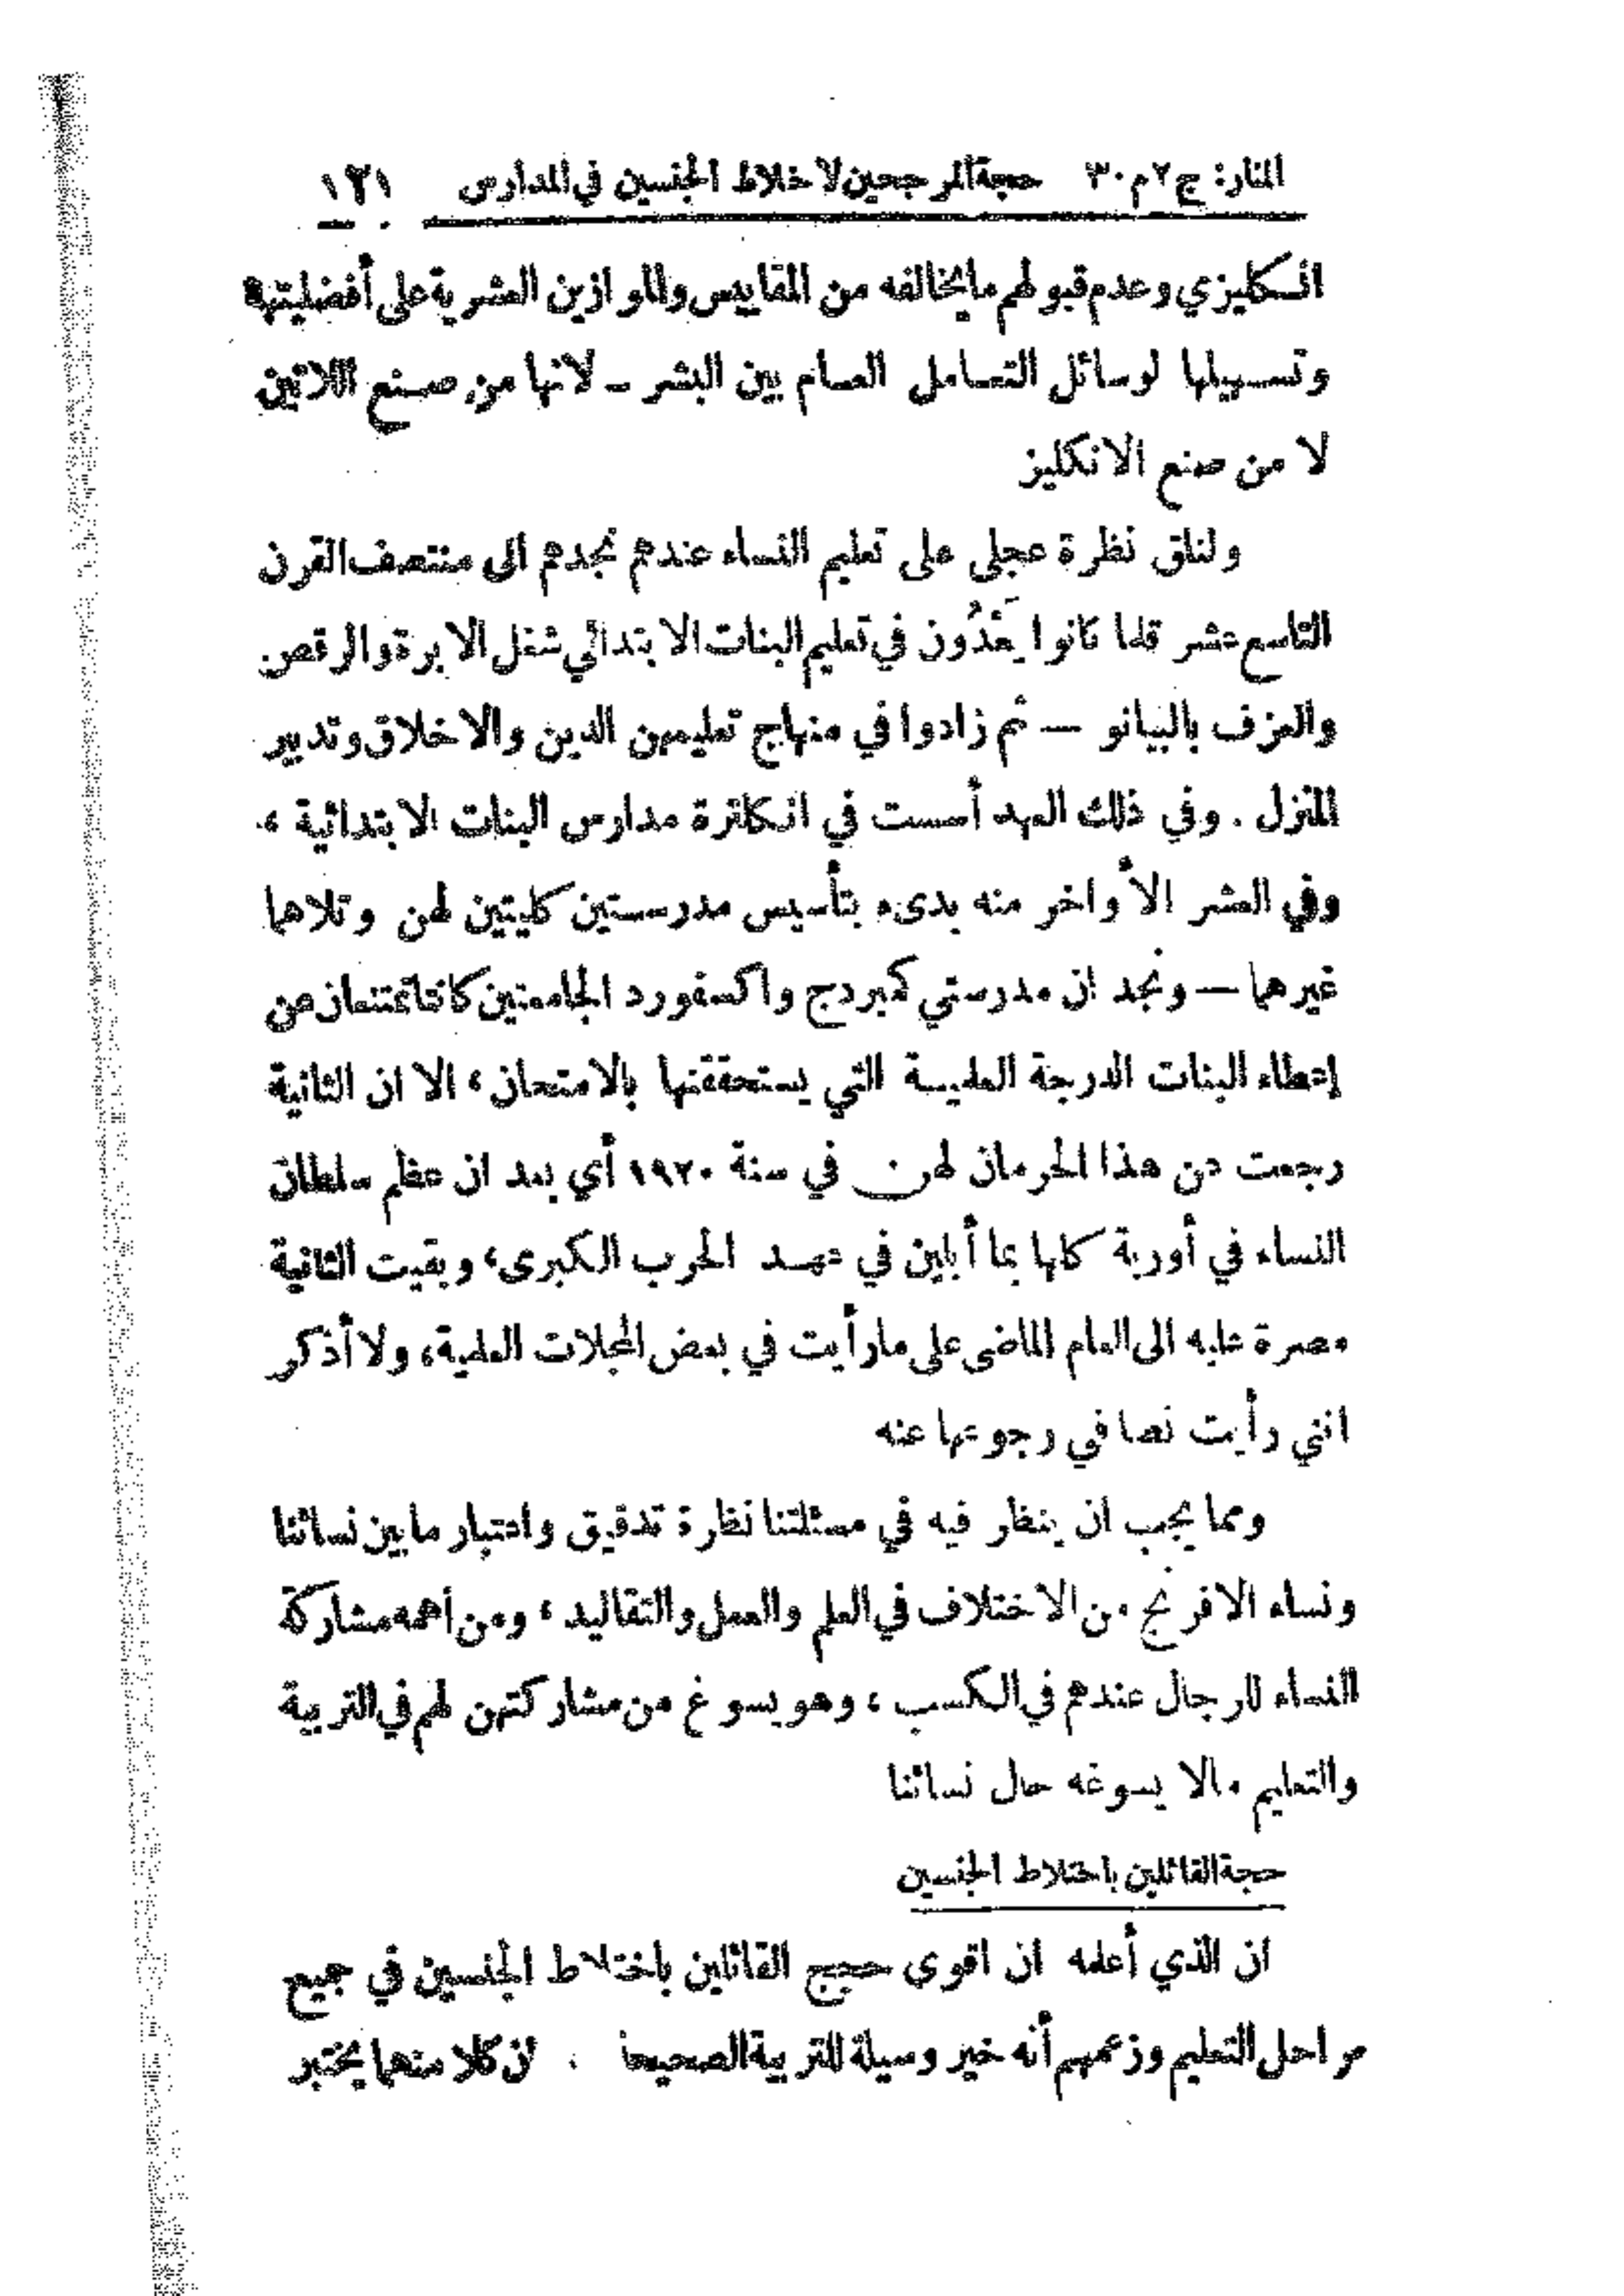 المنار: ج ٢ م ٣٠ حجة المرجحين لاختلاط الجنسين في المدارس ١٢١
انكليزي وعدم قبولهم ما يخالفه من المقاييس والموازين العشرية على أفضليتها
وتسهيلها لوسائل التعامل العام بين البشر ــ لانها من صنع اللاتين
لا من صنع الانكليز
ولنلق نظرة عجلى على تعليم النساء عندهم نجدهم الى منتصف القرن
التاسع عشر قلما كانوا يَعْدُون في تعليم البنات الابتدائي شغل الابرة والرقص
والعزف بالبيانو — ثم زادوا في منهاج تعليمهن الدين والاخلاق وتدبير
المنزل . وفي ذلك العهد أسست في انكلترة مدارس البنات الابتدائية ،
وفي العشر الأواخر منه بدىء بتأسيس مدرستين كليتين لهن وتلاهما
غيرهما — ونجد ان مدرستي كمبردج واكسفورد الجامعتين كانتا تمتنعان عن
إعطاء البنات الدرجة العلمية التي يستحققنها بالامتحان ، الا ان الثانية
رجعت عن هذا الحرمان لهن في سنة ١٩٢٠ أي بعد ان عظم سلطان
النساء في أوربة كلها بما أبلين في عهد الحرب الكبرى، وبقيت الثانية
مصرة عليه الى العام الماضي على ما رأيت في بعض المجلات العلمية، ولا أذكر
انني رأيت نصا في رجوعها عنه
ومما يجب ان ينظر فيه في مسئلتنا نظرة تدقيق واعتبار ما بين نسائنا
ونساء الافرنج من الاختلاف في العلم والعمل والتقاليد ، ومن أهمه مشاركة
النساء للرجال عندهم في الكسب ، وهو يسوغ من مشاركتهن لهم في التربية
والتعليم مالا يسوغه حال نسائنا
حجة القائلين باختلاط الجنسين
ان الذي أعلمه ان اقوى حجج القائلين باختلاط الجنسين في جميع
مراحل التعليم وزعمهم أنه خير وسيلة للتربية الصحيحة . ان كلا منهما يختبر